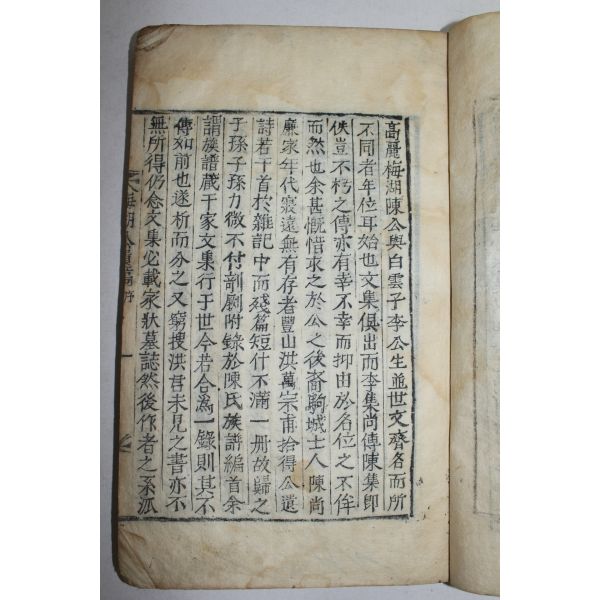 高麗梅湖陳公與白雲子李公生並世文齊名而所
不同者年位耳始也文集俱出而李集尚傳陳集卽
佚豈不朽之傳亦有幸不幸而抑由於名位之不侔
而然也余甚慨惜求之於公之後裔駒城士人陳尚
廉家年代寢遠無有存者豐山洪萬宗甫拾得公遺
詩若干首於雜記中而殘篇短什不滿一冊故歸之
于孫子孫力微不付剞劂附錄於陳氏族譜編首余
謂族譜藏于家文集行于世今若合為一錄則其不
傳如前也遂析而分之又窮搜洪君未見之書亦不
無所得仍念文集必載家狀墓誌然後作者之系派
梅湖公遺稿序
一